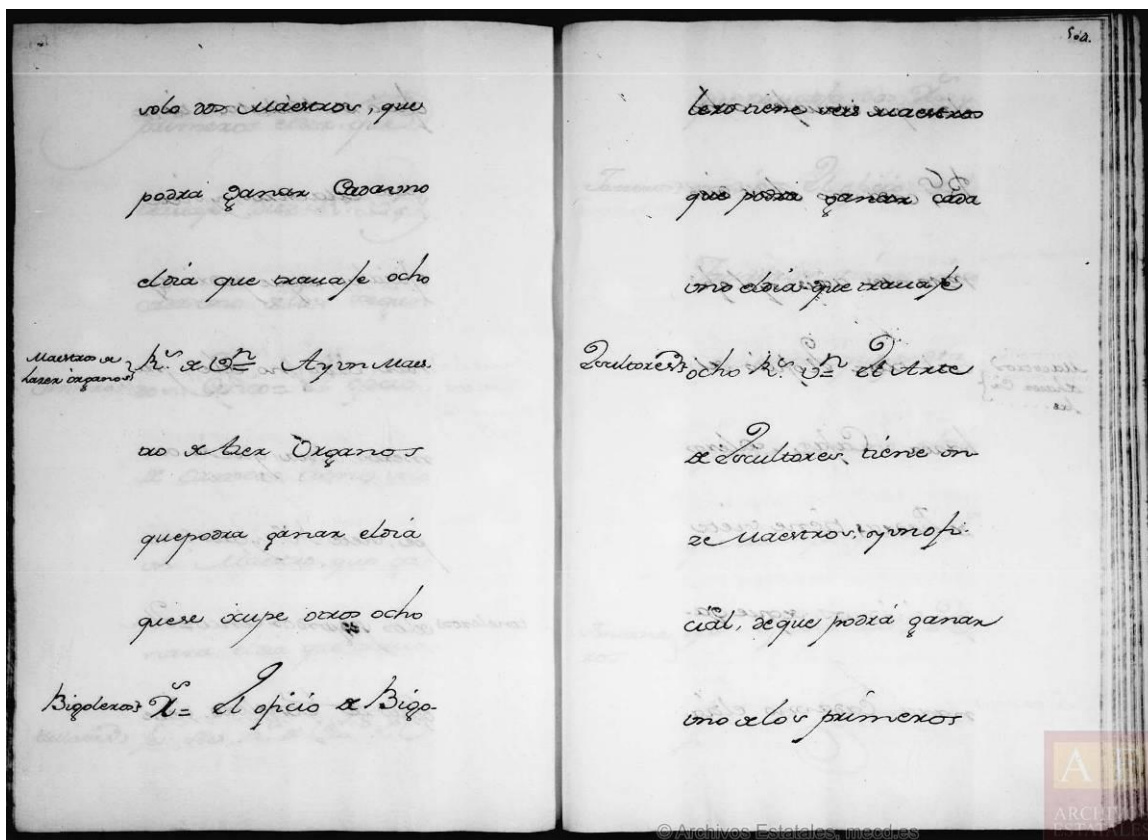 solo dos Maestros, que
podra ganar Cada uno
el dia que trauaje ocho
Maestros de
hazer organos} R.s de V.n = Ay vn Maes
tro de hazer Organos
que podra ganar el dia
que se ócupe otros ocho
Bigoleros} R.s = El oficio de Bigo-
502.
lero tiene seis Maestros
que podrá ganar cada
uno el dia que trauaje
Escultores} ócho R.s V.n = El Arte
de Escultores, tiene on-
ze Maestros, y vn ofi-
cial, de que podrá ganar
uno de los primeros
© Archivos Estatales, mecd.es